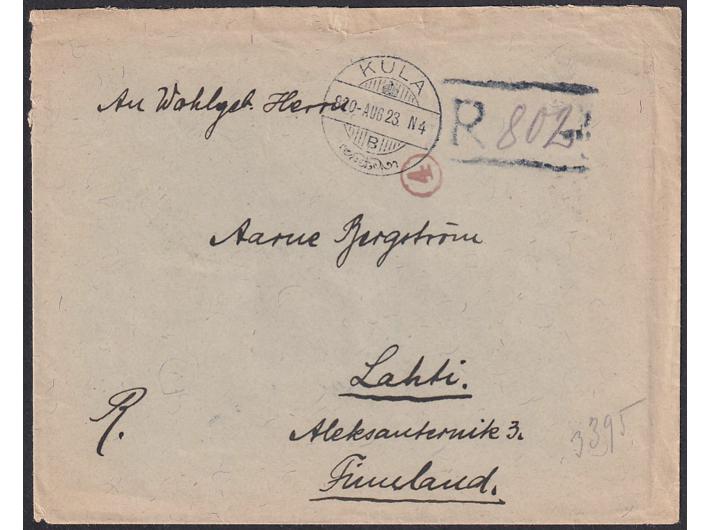 KULA
920-AUG 23. N4
B
R 802
4
An Wohlgeb. Herrn
Aarne Bergström
Lahti.
R.
Aleksanternik 3.
3395
Finnland.